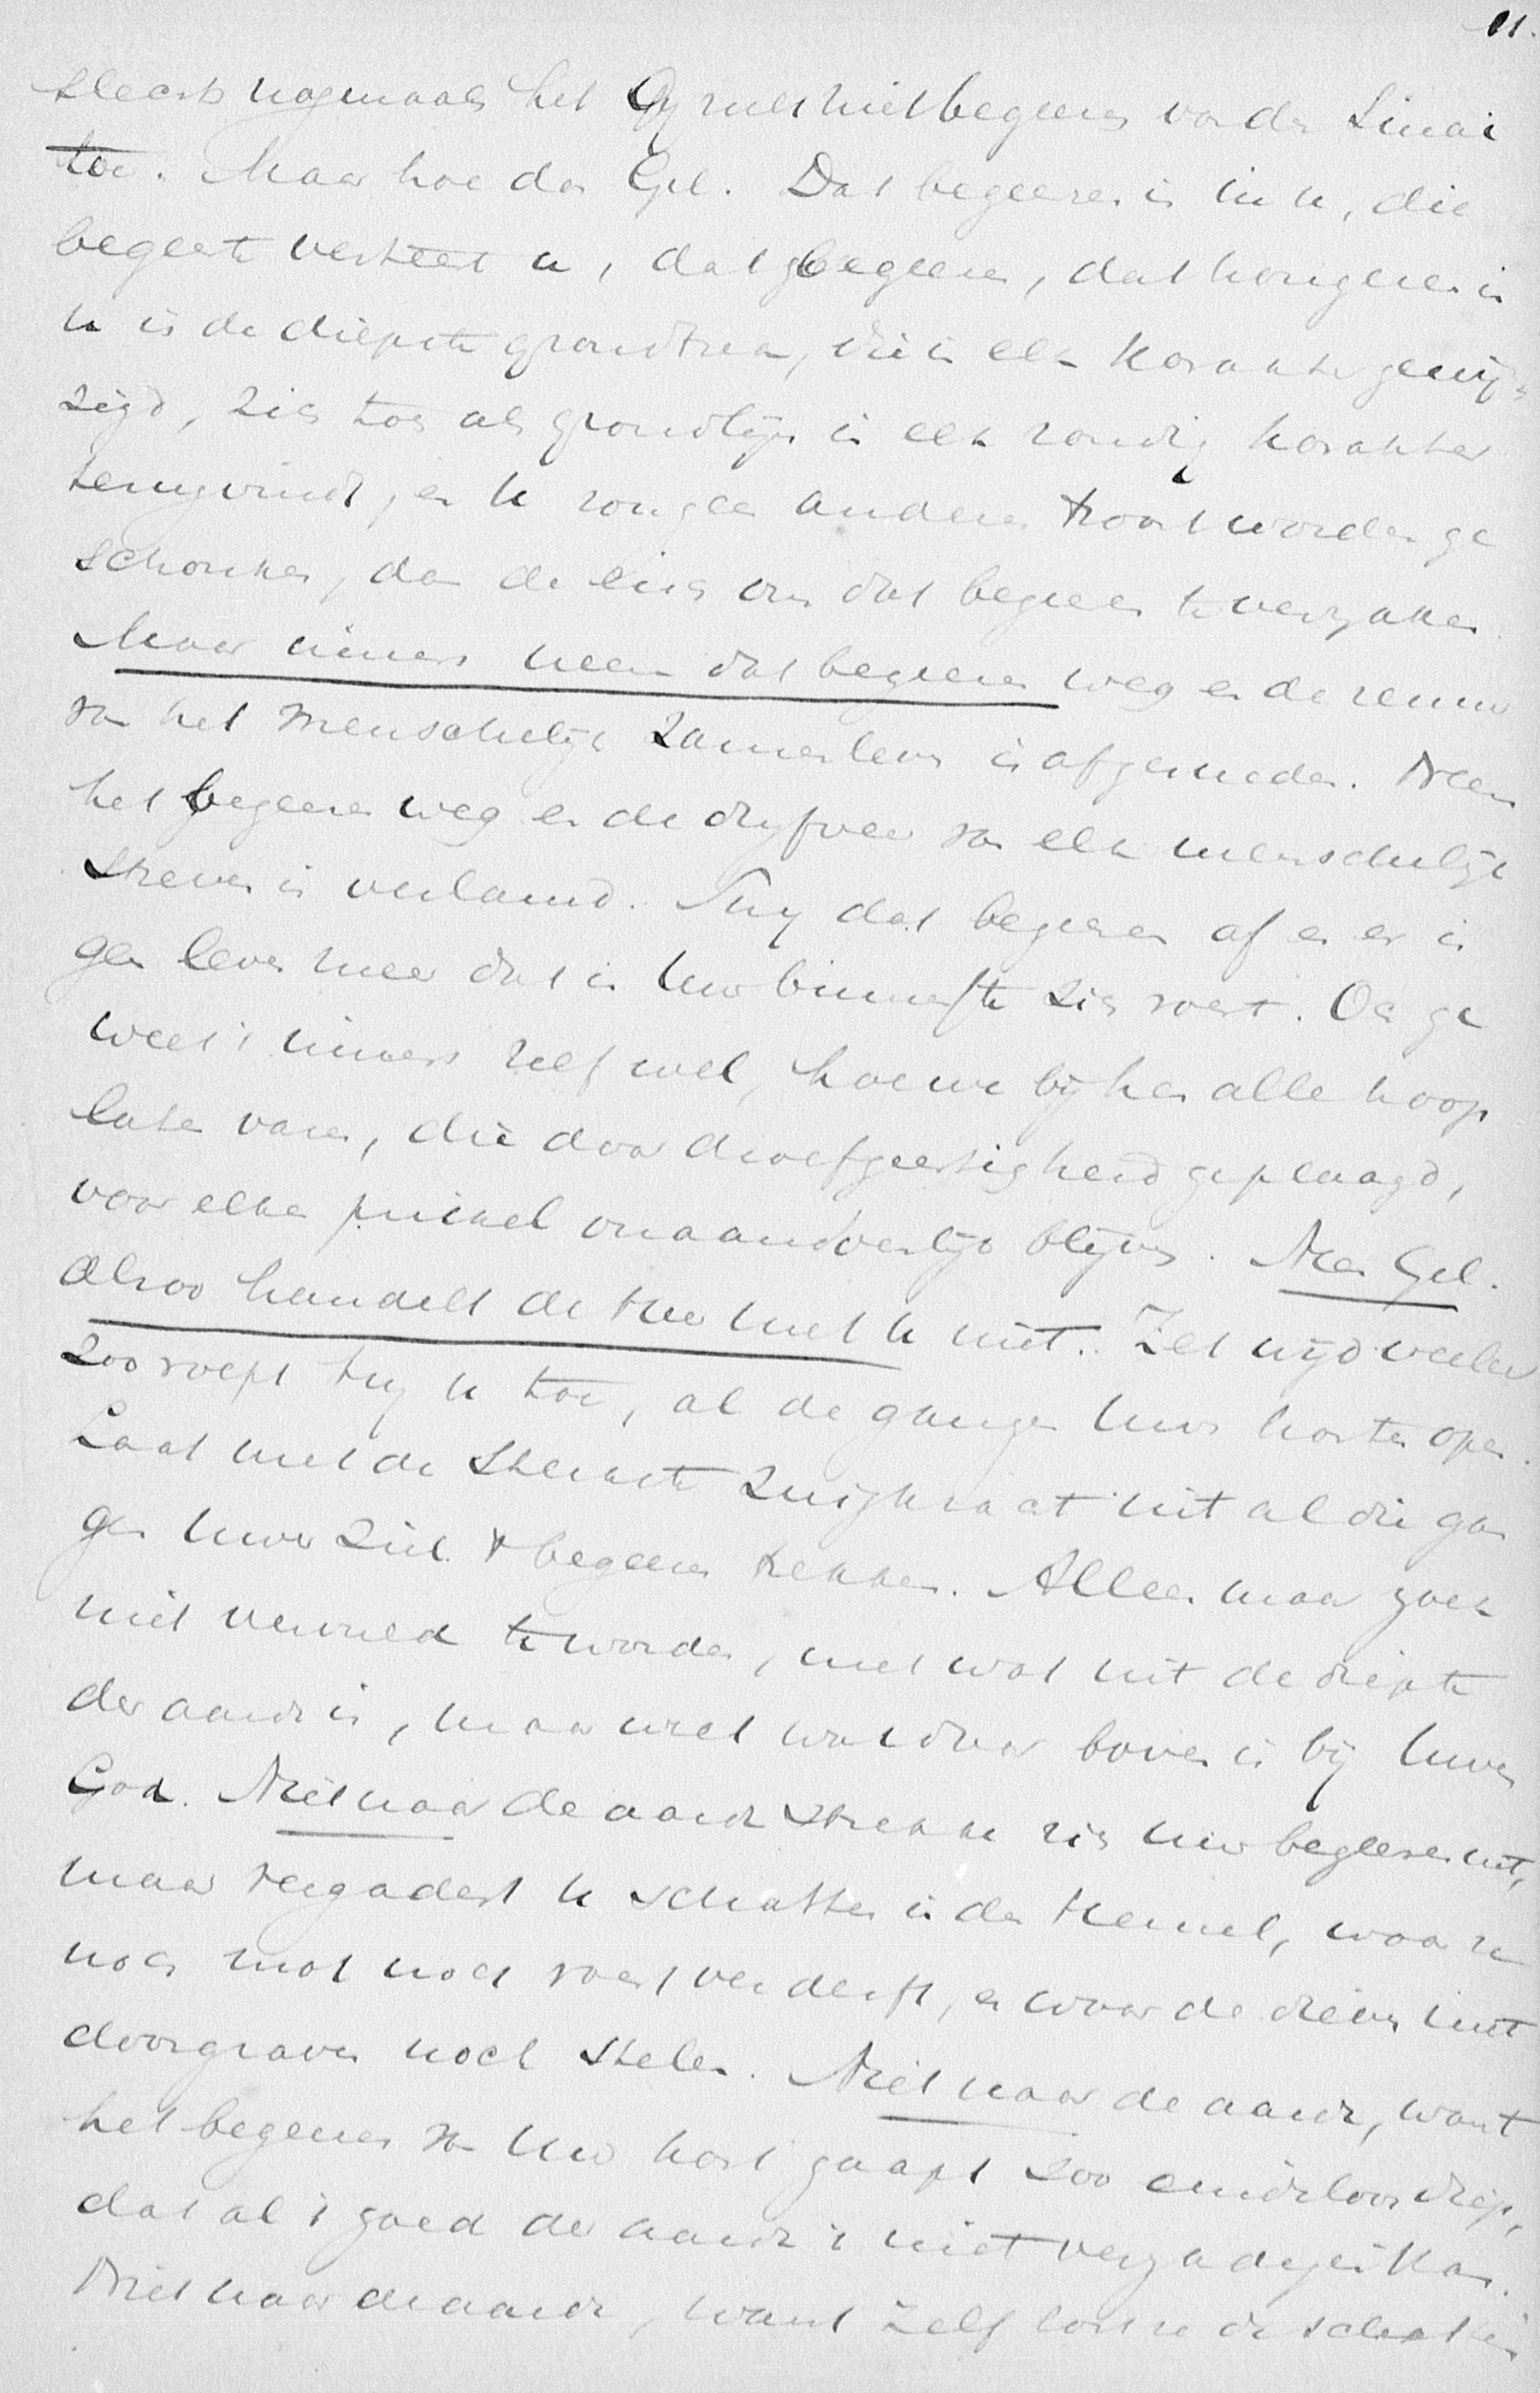 11.
slechts nogmaals het Gij zult niet begeeren van den Sinai
toe. Maar hoe dan Gel. Dat begeeren is in u, die
begeerte verteert u, dat begeeren, dat hongeren in
u is de diepste grondtrek, die in elk karakter gewij-
zigd, zich toch als grondlijn in elk zondig karakter
terugvindt, en u zou geen andere troost worden ge
schonken, dan de eisch om dat begeeren te verzaken.
Maar immers neem dat begeeren weg en de zenuw
van het menschelijk zamenleven is afgesneden. Neem
het begeeren weg en de drijfveer van elk menschelijk
streven is verlamd. Snij dat begeeren af en er is
geen leven meer dat in Uw binnenste zich roert. Och ge
weet 't immers zelf wel, hoe we bij hen alle hoop
laten varen, die door droefgeestigheid geplaagd,
voor elken prikkel onaandoenlijk blijven. Neen Gel.
Alzoo handelt de Heer met U niet. Zet wijd veeleer
zoo roept Hij U toe, al de gangen Uws harten open.
Laat met de sterkste zuigkracht uit al die gan
gen Uwer ziel 't begeeren trekken. Alleen maar zoek
niet vervuld te worden, met wat uit de diepte
der aarde is, maar met wat daar boven is bij Uwen
God. Niet naar de aarde strekke zich Uw begeeren uit,
maar vergadert U schatten in den Hemel, waar ze
noch mot noch roest verderft, en waar de dieven niet
doorgraven noch stelen. Niet naar de aarde, want
het begeeren van Uw hart gaapt zoo eindeloos diep,
dat al 't goed der aarde 't niet verzadigen kan.
Niet naar de aarde, want zelf de schatten